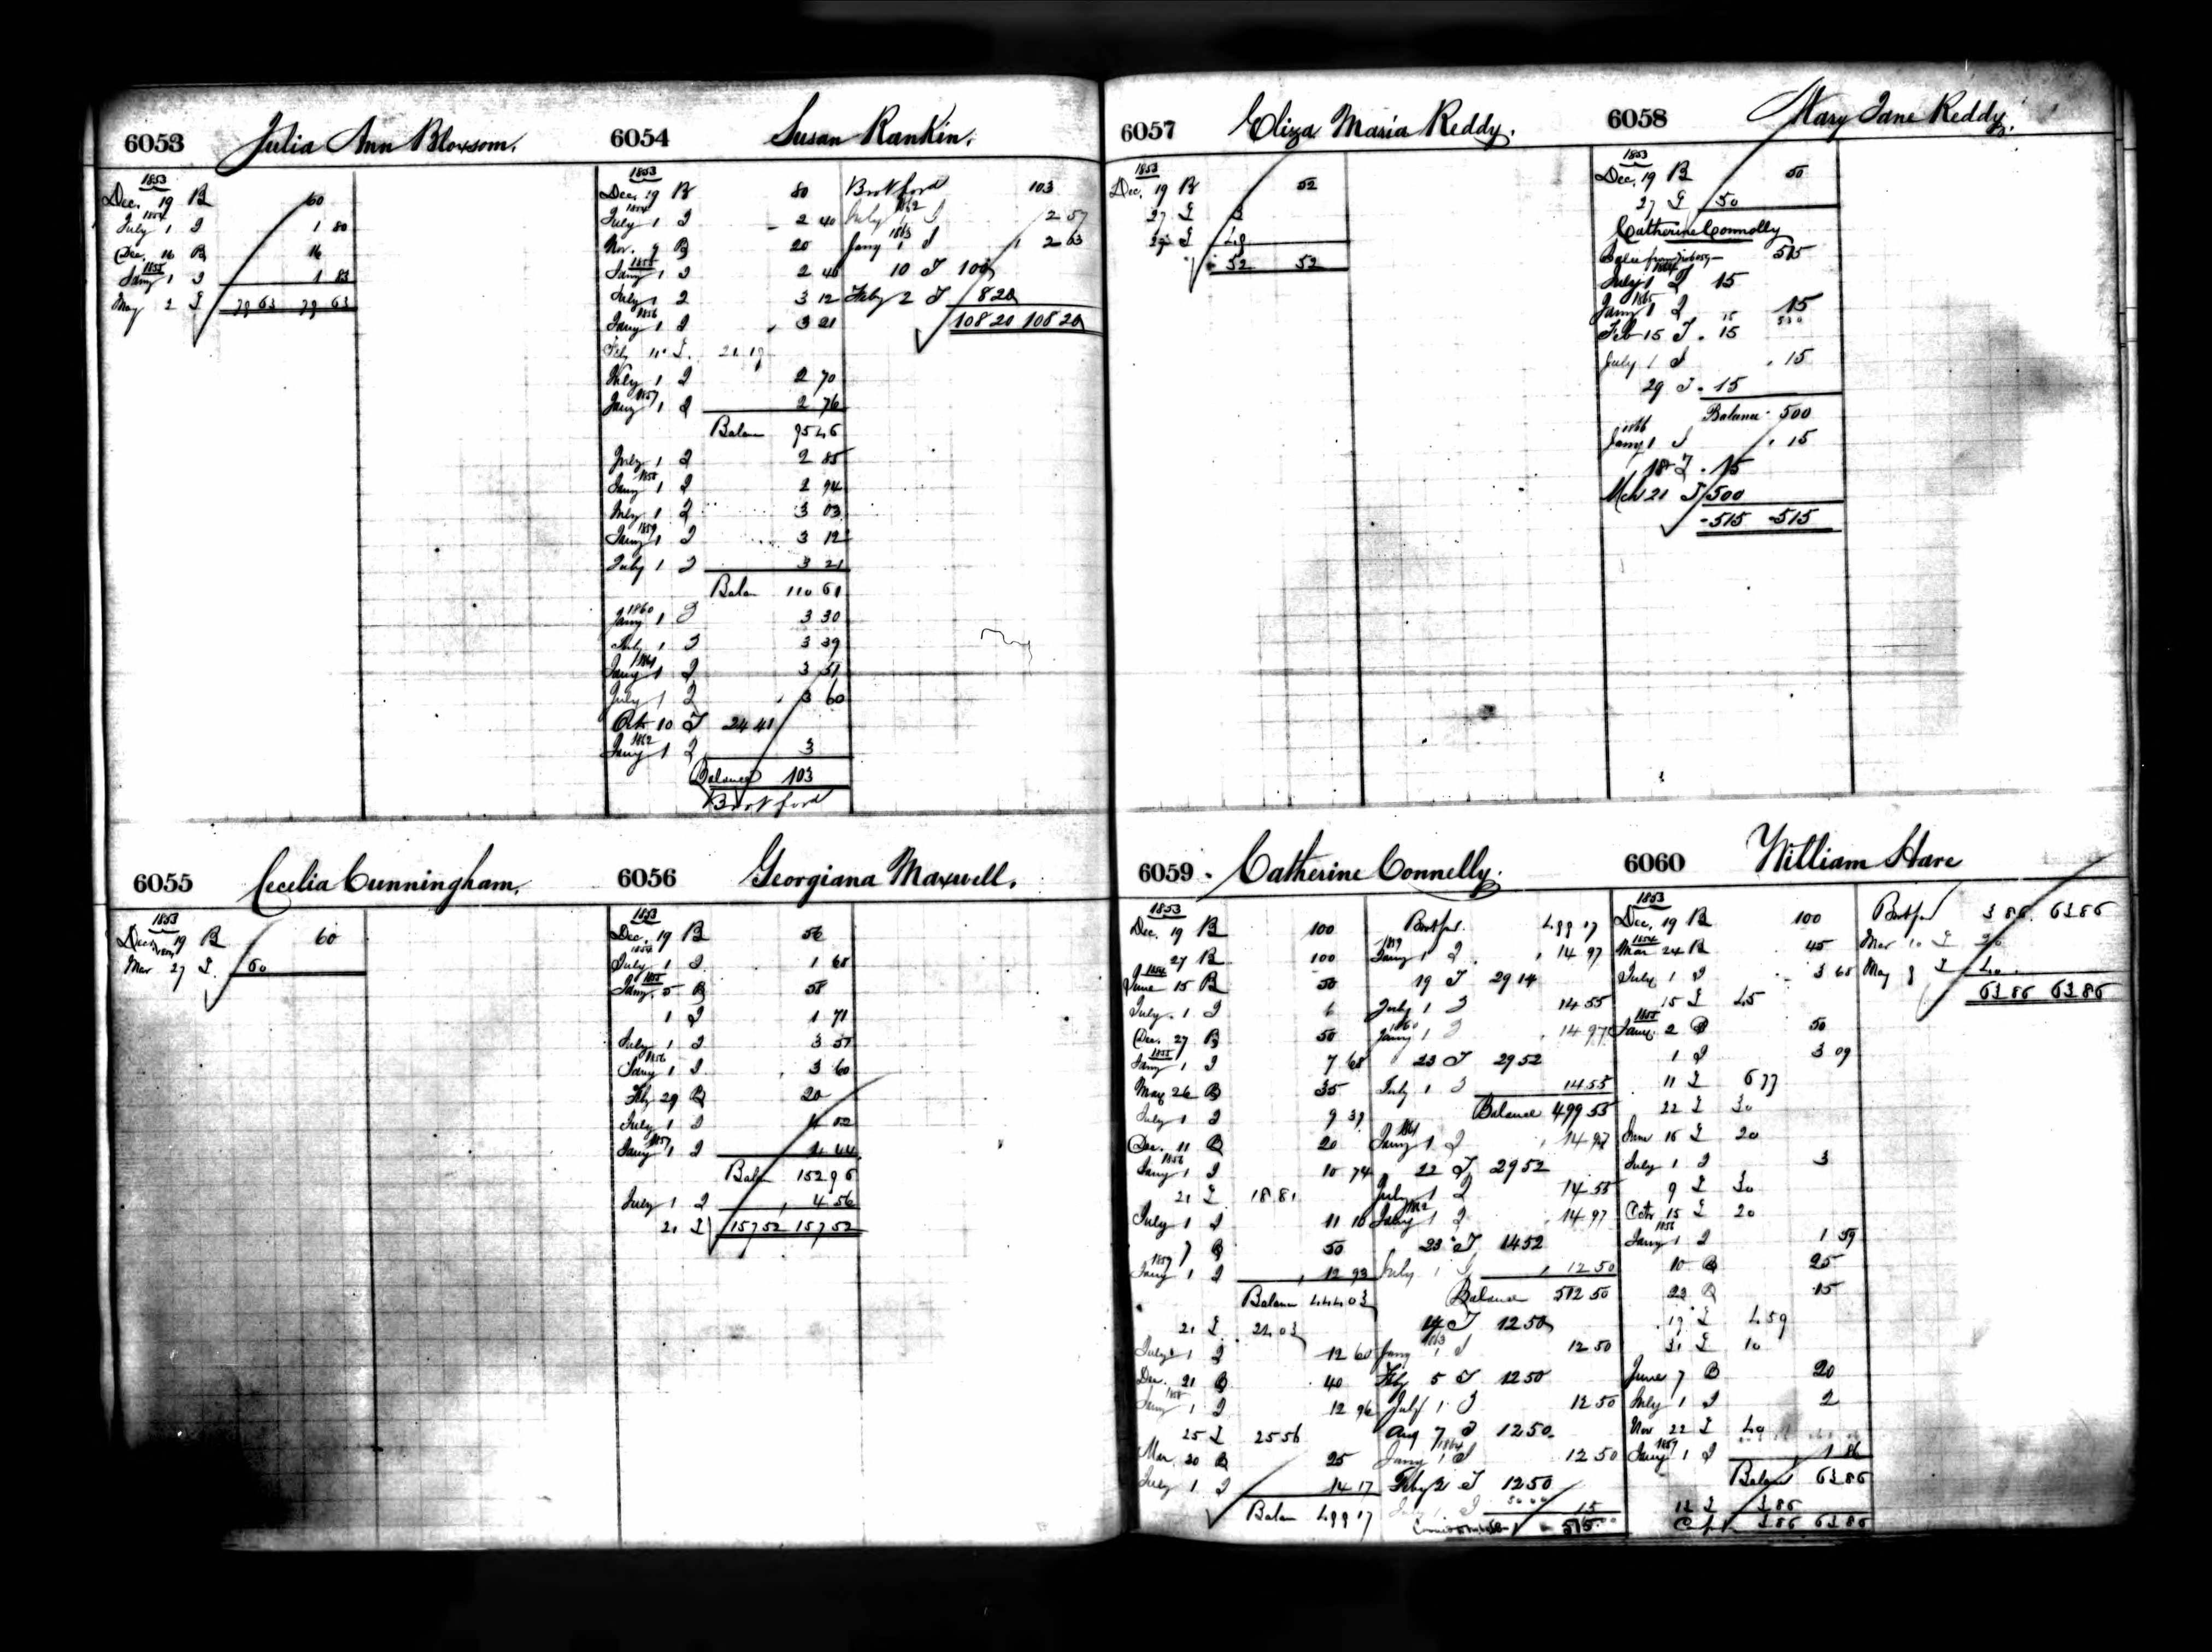 6053 Julia Ann Bloxsom.
1853
Dec. 19 B 60
1854
July 1 I 1 80
Dec. 16 B 16
1855
Jany 1 I 1 83
May 2 I 79 63 79 63
6054 Susan Rankin.
1853
Dec. 19 B 80
1854
July 1 I 2 40
Nov. 9 B 20
1855
Jany 1 I 2 40
July 1 I 3 12
1856
Jany 1 I 3 21
Feby 21 19
July 1 I 2 70
1857
Jany 1 I 2 76
Balan 95 46
July 1 I 2 85
1858
Jany 1 I 2 94
July 1 I 3 03
1859
Jany 1 I 3 12
July 1 I 3 21
Balan 110 61
1860
Jany 1 I 3 30
July 1 I 3 39
1861
Jany 1 I 3 51
July 1 I 3 60
Octr 10 I 24 41
1862
Jany 1 I 3
Balance 103
Brot ford
Brot ford 103
1862
July 1 I 2 57
1863
Jany 1 I 2 63
10 I 100
Feby 2 I 8 20
108 20 108 20
6055 Cecelia Cunningham.
1853
Dec. 19 B 60
Mar 27 I 60
6056 Georgiana Maxwell.
1853
Dec. 19 B 56
1854
July 1 I 1 68
1855
Jany. 5 B 58
1 I 1 71
July 1 I 3 51
1856
Jany 1 I 3 60
Feby 29 B 20
July 1 I 4 02
1857
Jany 1 I 4 44
Balan 152 96
July 1 I 4 56
21 I 157 52 157 52
6057 Eliza Maria Reddy.
1853
Dec. 19 B 52
27 I 3
29 I 49
52 52
6058 Mary Jane Reddy.
1853
Dec. 19 B 50
27 I 50
Catherine Connolly
Balce from 6059 515
1864
July 1 I 15
1865
Jany 1 I 15
Feb 15 I 15
July 1 I 15
29 I 15
Balance 500
1866
Jany 1 I 15
18 I 15
Mch 21 I 500
515 515
6059 Catherine Connelly.
1853
Dec. 19 B 100
27 B 100
1854
June 15 B 50
July 1 I 6
Dec. 27 B 50
1855
Jany 1 I 7 68
May 26 B 35
July 1 I 9 39
Dec. 11 B 20
1856
Jany 1 I 10 74
21 I 18 81
July 1 I 11 10
7 B 50
1857
Jany 1 I 12 93
Balan 444 03
21 I 24 03
July 1 I 12 60
Dec. 21 B 40
1858
Jany 1 I 12 96
25 I 25 56
Mar 20 B 25
July 1 I 14 17
Balan 499 17
Brot for. 499 17
1859
Jany 1 I 14 97
19 I 29 14
July 1 I 14 55
1860
Jany 1 I 14 97
23 I 29 52
July 1 I 14 55
Balance 499 55
1861
Jany 1 I 14 97
22 I 29 52
July 1 I 14 55
1862
Jany 1 I 14 97
23 I 14 52
July 1 I 12 50
Balance 512 50
14 I 12 50
1863
Jany 1 I 12 50
Feby 5 I 12 50
July 1 I 12 50
Aug 7 I 12 50
1864
Jany 1 I 12 50
Feby 2 I 12 50
July 1 I 15
515
6060 William Hare
1853
Dec. 19 B 100
1854
Mar 24 B 45
July 1 I 3 68
15 I 45
1855
Jany. 2 B 50
1 I 3 09
11 I 6 77
22 I 30
June 16 I 20
July 1 I 3
9 I 30
Octr 15 I 20
1856
Jany 1 I 1 59
10 B 25
22 B 15
19 I 4 59
31 I 10
June 7 B 20
July 1 I 2
Nov 22 I 40
1857
Jany 1 I 1 86
Balan 63 86
12 I 3 86
3 86 63 86
Brot for 3 86 63 86
Mar 10 I 20
May 8 I 40
63 86 63 86